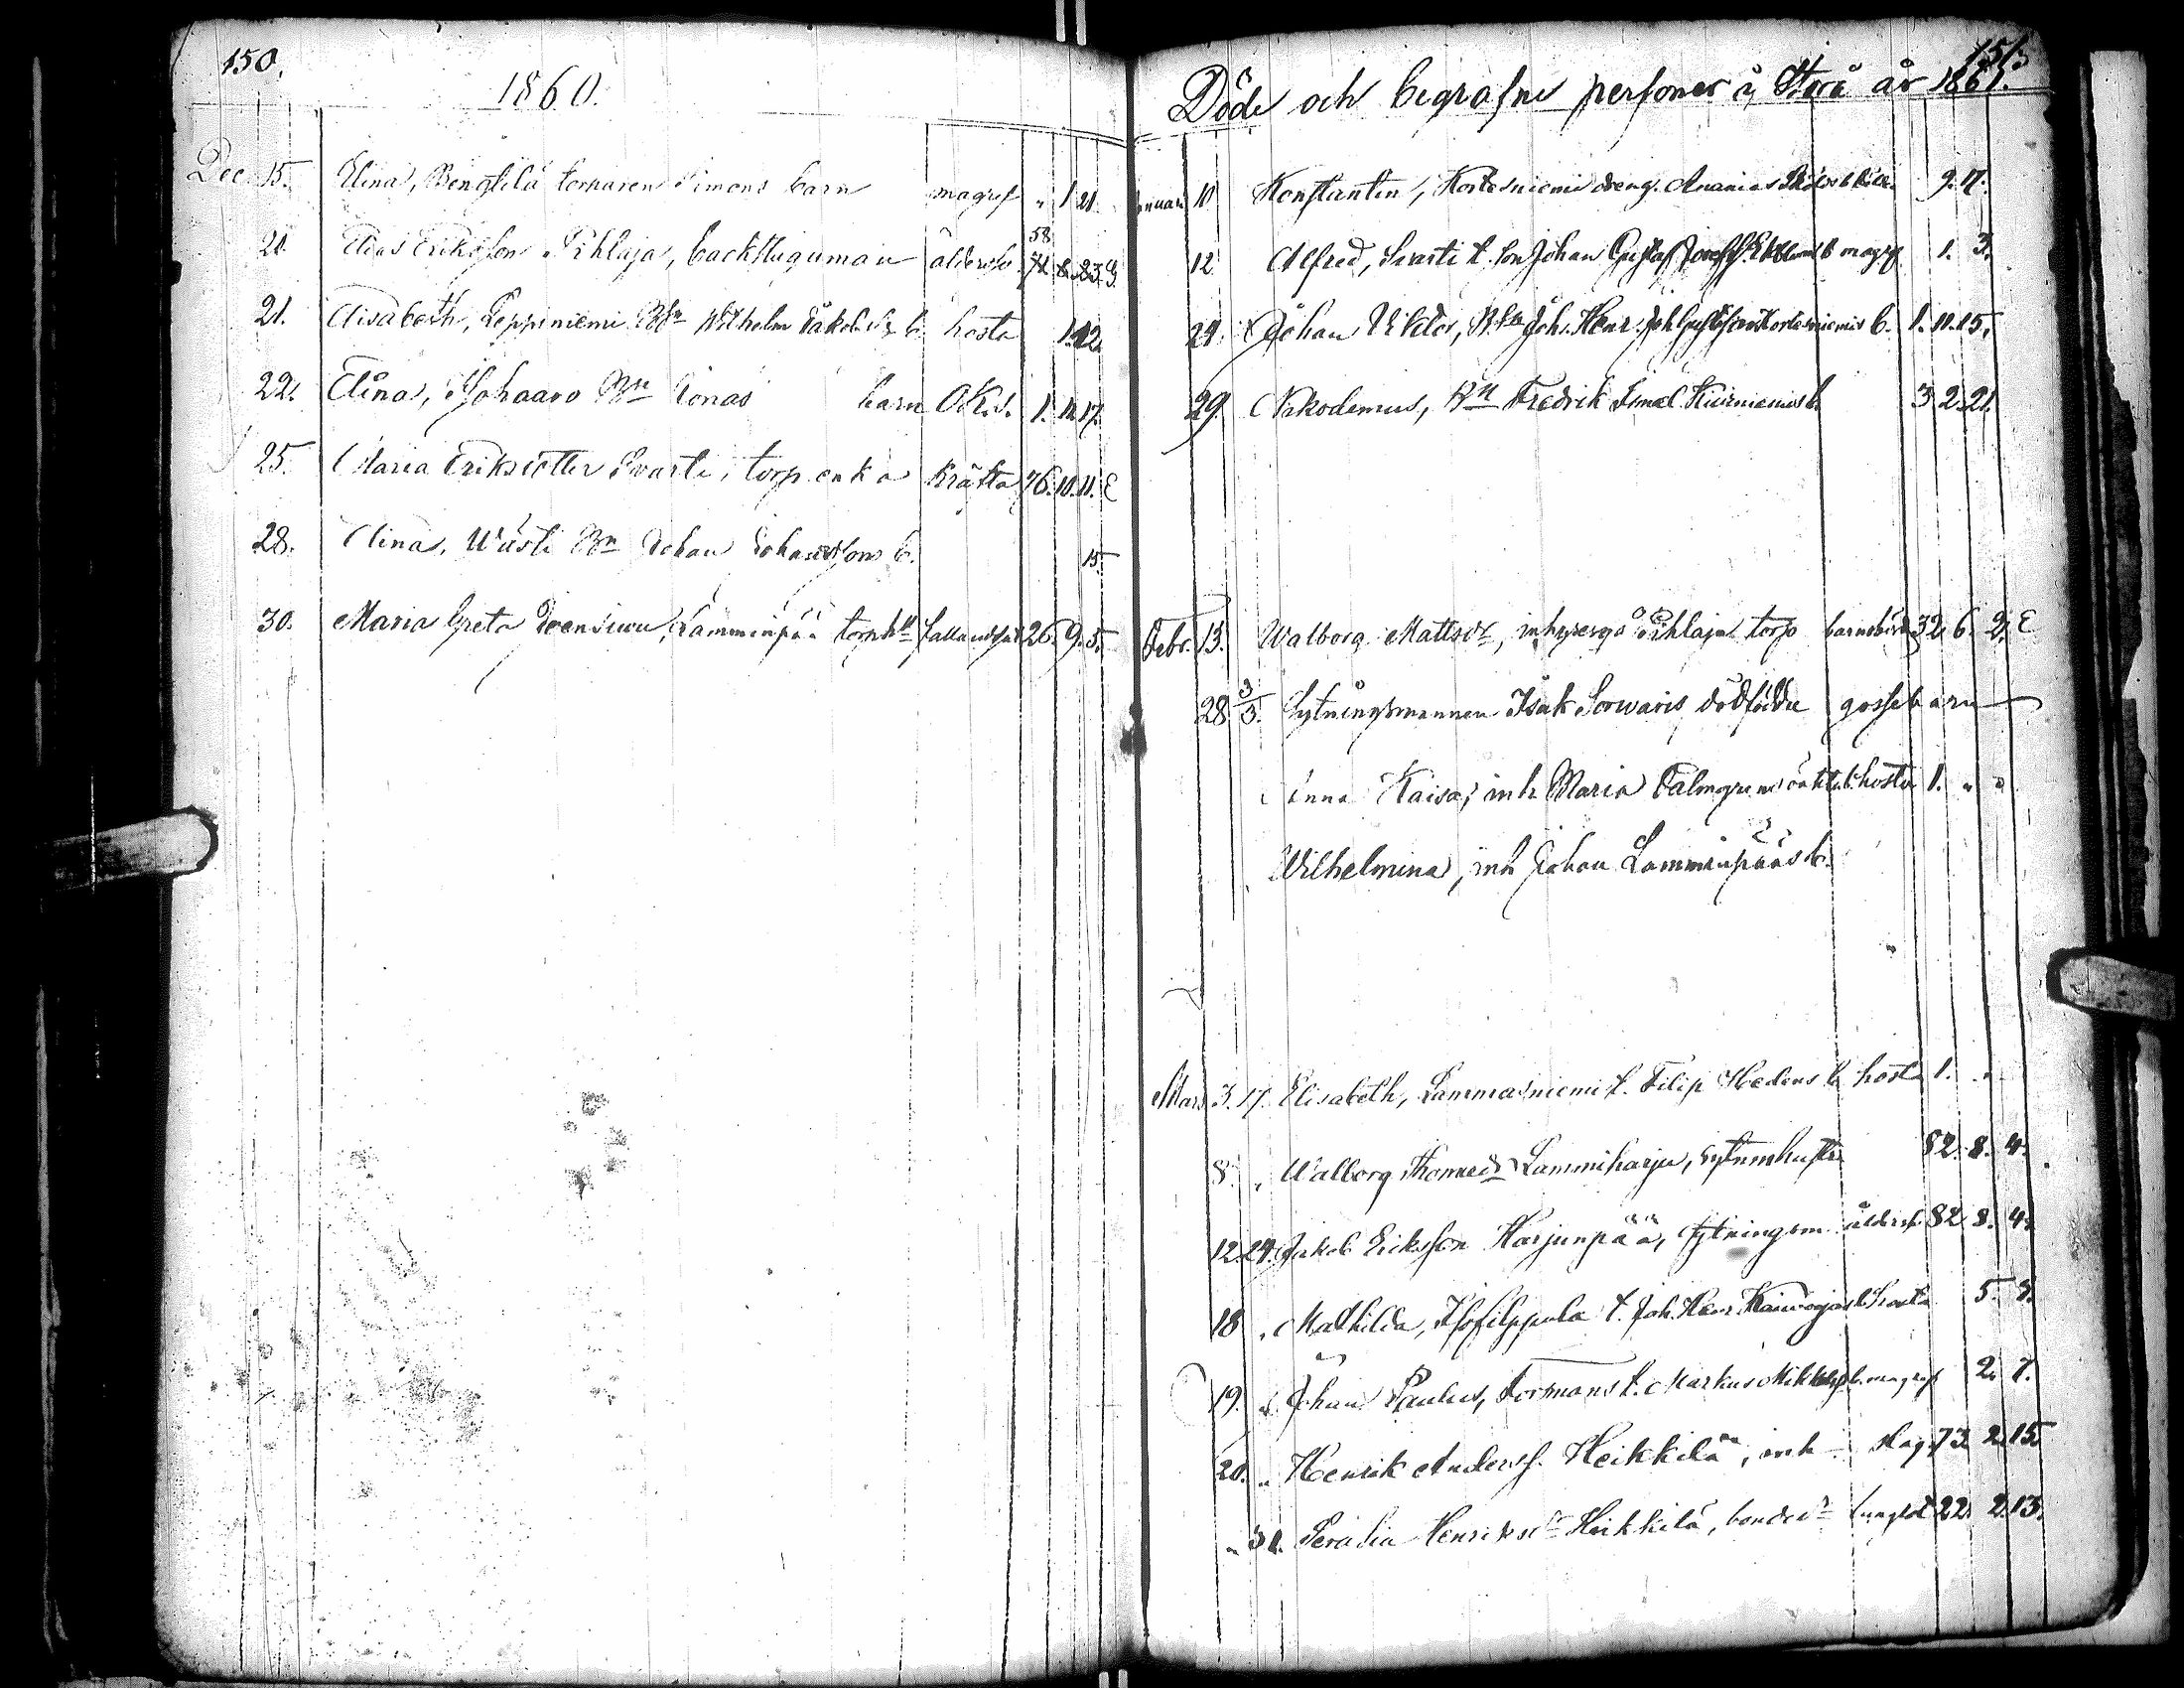 150.
1860.
Dec. 15. Elina, Bengtilä torparen Simons barn magref " 1 21.
21. Elias Eriksson Pihlaja, backstuguman ålderdo 58 74 8.23.9.
21. Elisabeth, Leppiniemi Bn Wilhelm Jakobs b. hosta 1.12.
22. Elina, Isohaaro Bn Jonas barn OK.s. 1.11.17.
25. Maria Eriksdotter Svarti, torp.enka kräfta 76.10.11. E
28. Elina, Wästi Bn Johan Johanssons b. 15.
30. Maria Greta Joensuu, Lamminpää torph. fallandesot 26. 9. 5.
151.
Döde och begrafne personer i Storå år 1861.
Januari 10 Konstantin, Kortesniemi dreng. Ananias 9. 17.
12 Alfred, Svarti t. son Johan Gustaf b magref 1. 3.
24. Johan Viktor, Joh. Henr. Kortesniemis b. 1. 11. 15.
29. Nikodemus, Bn Fredrik Kiviniemis b. 3 2. 21.
Febr. 13. Walborg Mattsdr, inhyses på Pihlaja torp barnsbörd 32. 6. 2. E
28. 3/3. Sytningsmannen Isak Sorvaris dödfödde gossebarn
Anna Kaisa, inh. Maria Palmgrens oäkta b. hosta 1. " "
Wilhelmina, inh Johan Lamminpääs b.
Mars 3. 17. Elisabeth, Lammasniemi t. Filip Hedens b hosta 1. "
8. " Walborg Thomasdr Lammiharju, sytninshustru 82. 8. 4.
12. 24. Jakob Eriksson Harjunpää, sytningsm. ålders. 82 8. 4.
18 " Mathilda, Isofilppula t. Joh. Henr. b hosta 5. 8.
19. " Johan Paulus, Formans t. Markus b. magref 2. 7.
20. " Henrik Andersf. Heikkilä, inh. slag 73. 2. 15.
" 31. Serafia Henriksdr Heikkilä, bonded. lungsot 22. 2. 13.